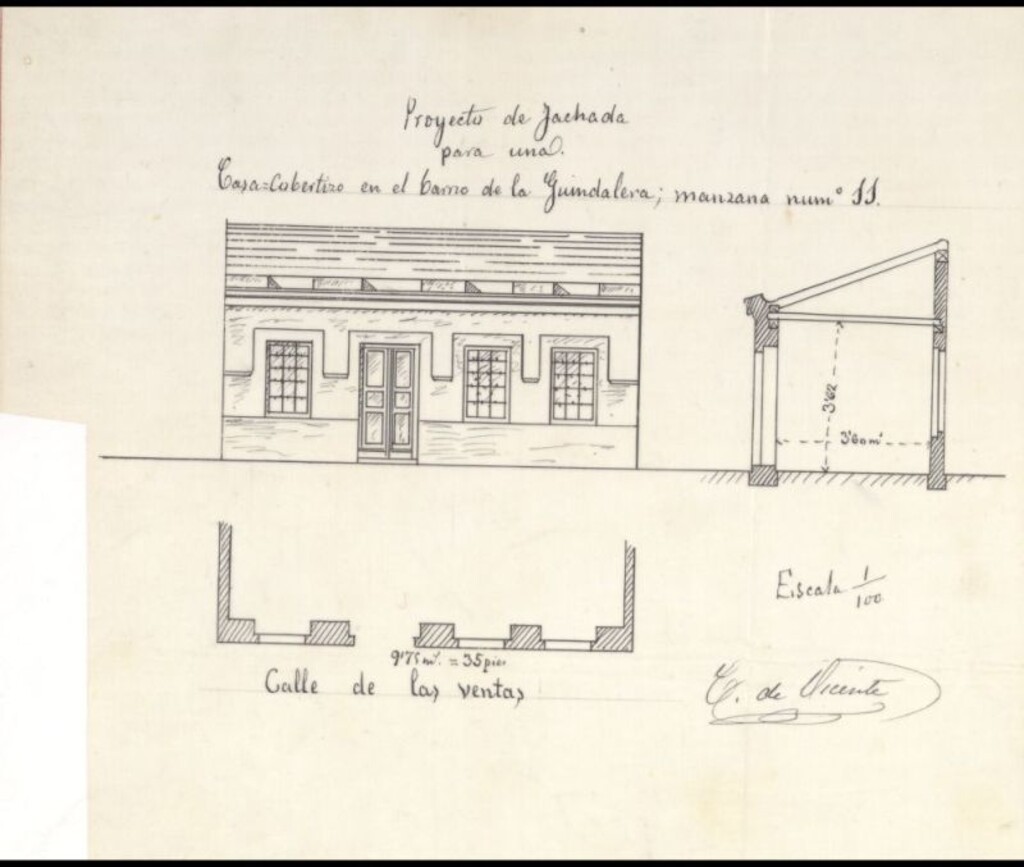 Proyecto de Fachada
para una
Casa=Cobertizo en el barrio de la Guindalera; manzana num° 11.
3'62
3'60 mˢ
Escala 1/100
9'75 mˢ. = 35 pies
Calle de las ventas
C. de Vicente